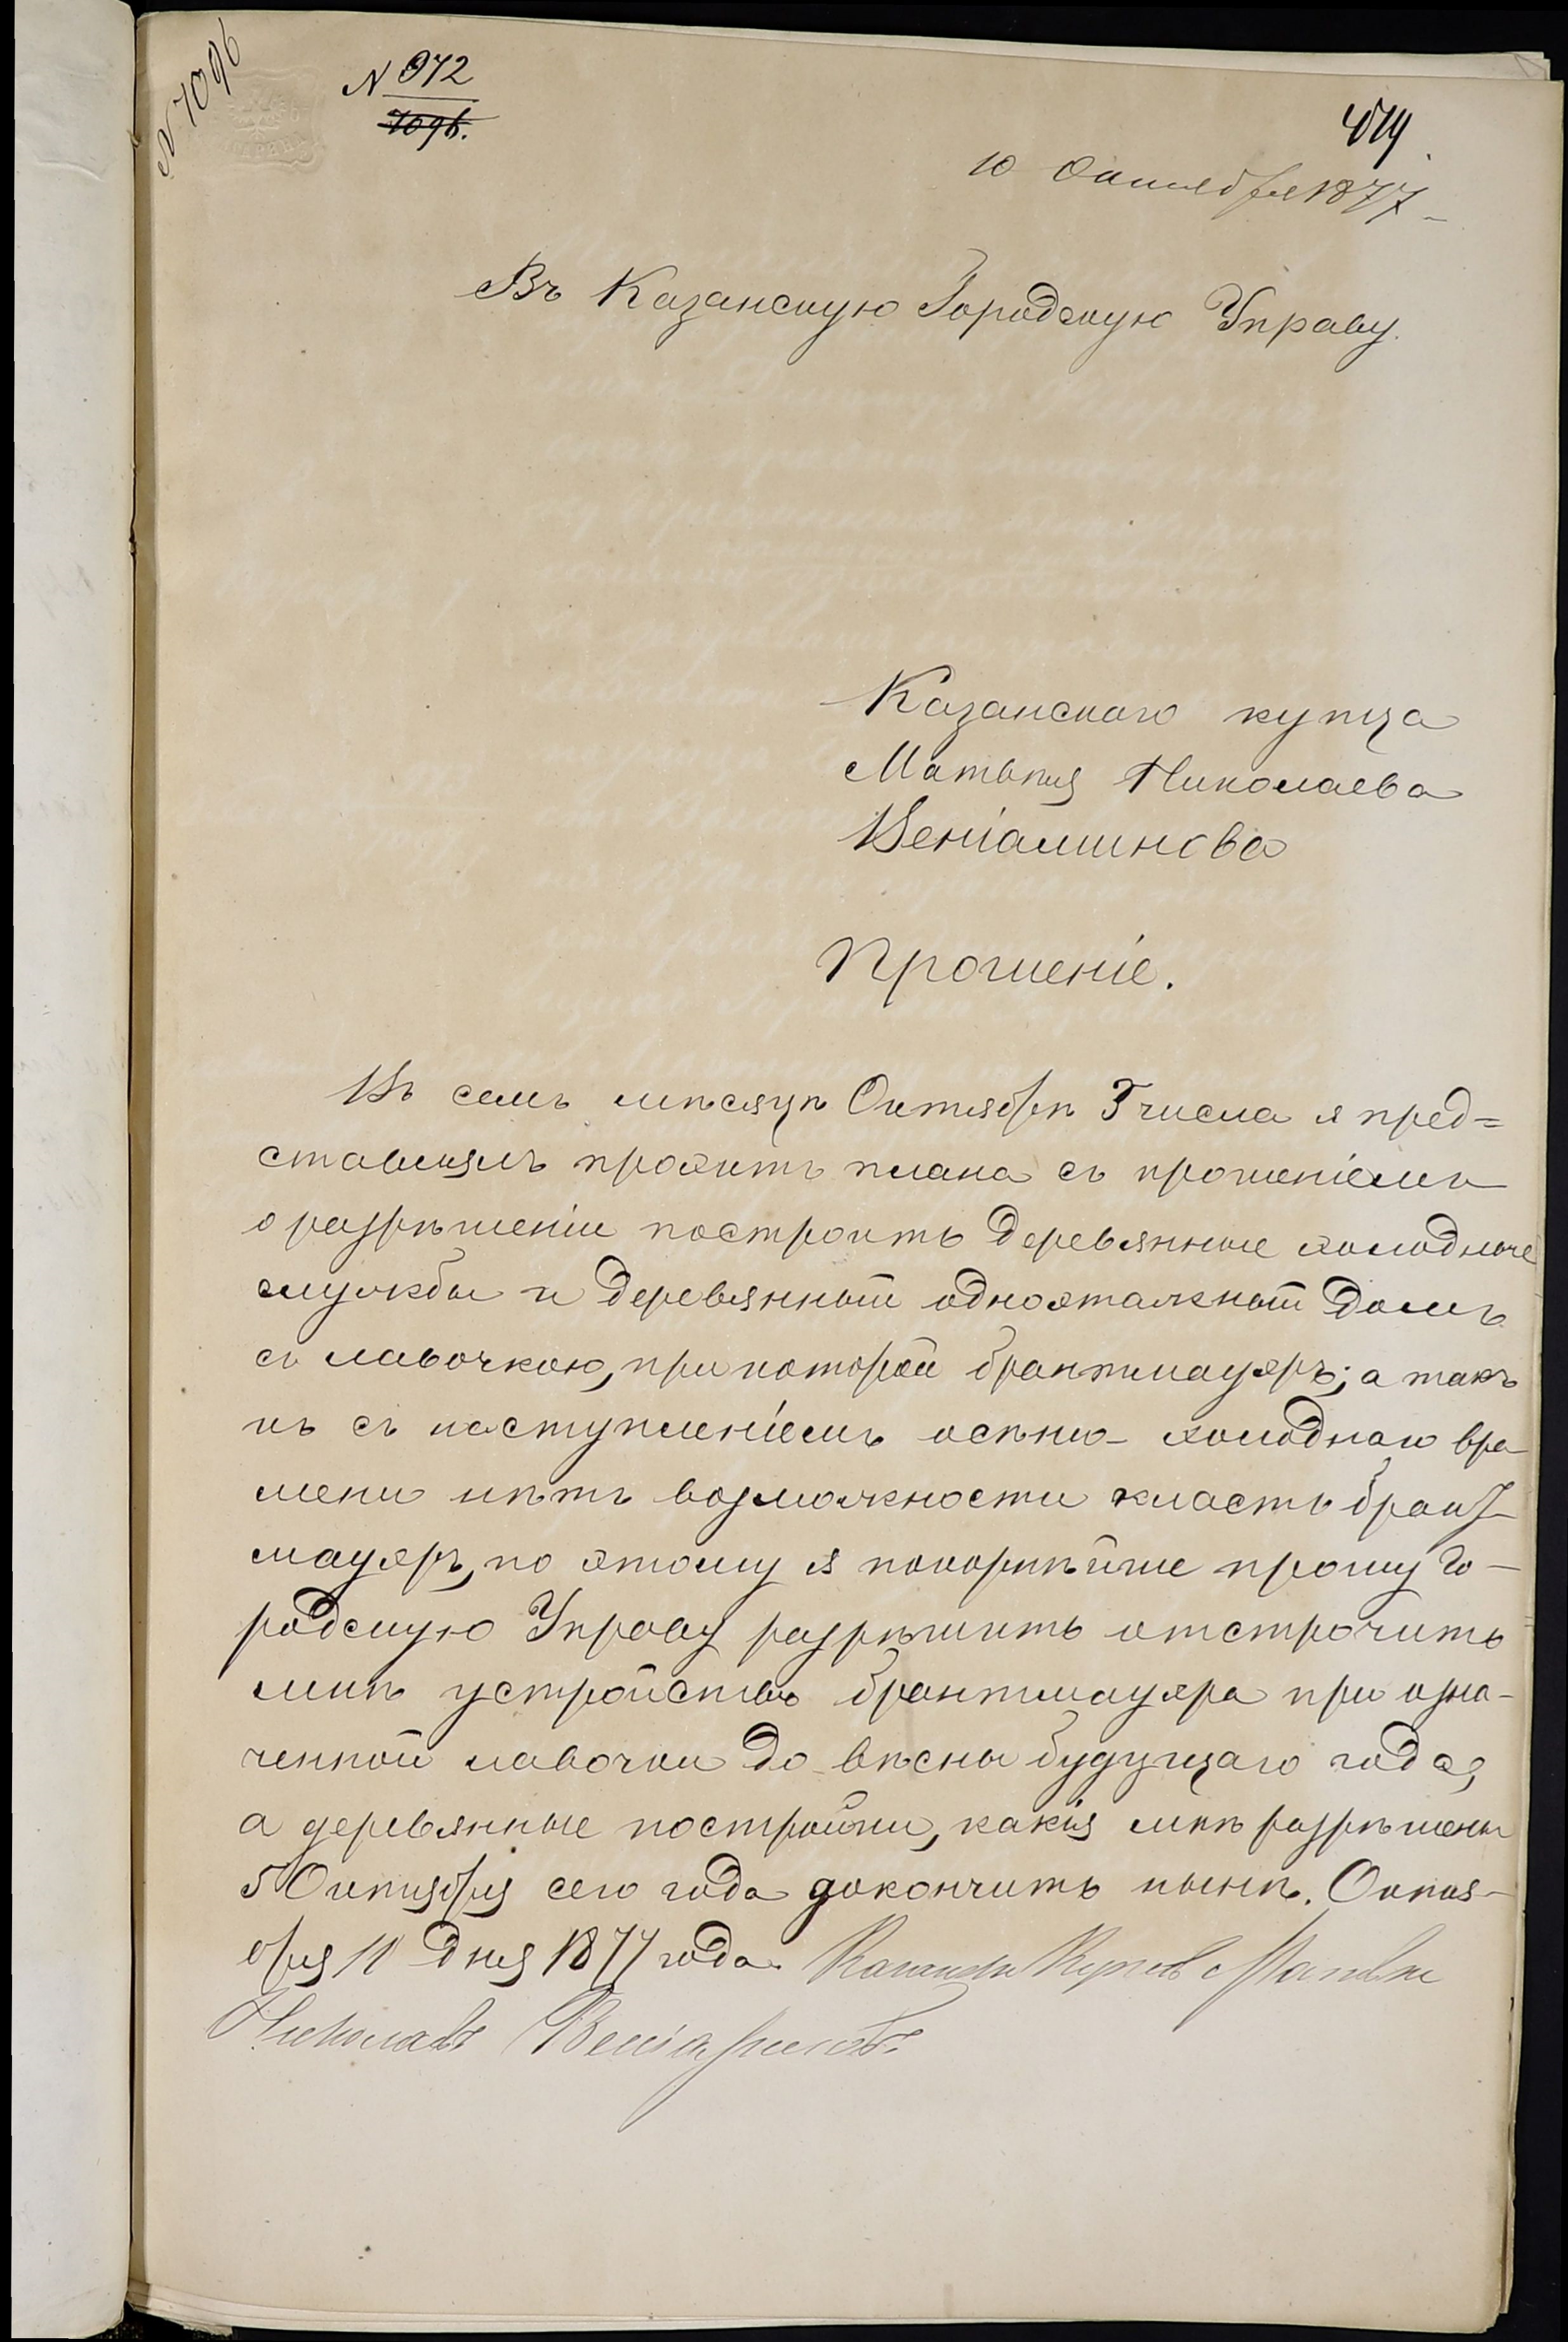 N 7096
N 972
7096.
10 Октября 1877
Въ Казанскую Городскую Управу.
Казанскаго купца
Матвѣя Николаева
Веніаминова
Прошеніе.
Въ семъ мѣсяцѣ Октябрѣ 3 числа я пред=
ставилъ проэктъ плана съ прошеніемъ
о разрѣшеніи построить деревянные холодные
службы и деревянный одноэтажный домъ
съ лавочкою, при которой брантмауэръ; а такъ
къ съ наступленіемъ осѣнно-холоднаго вре-
мени нѣтъ возможности класть брант-
мауэръ, по этому я покорнѣйше прошу Го-
родскую Управу разрѣшить отстрочить
мнѣ устройство брантмауэра при озна-
ченной лавочки до вѣсны будущаго года,
а деревянные постройки, какія мнѣ разрѣшены
5 Октября сего года докончить нынѣ. Октя-
бря 10 дня 1877 года. Казанскій Купецъ Матвѣй
Николаевъ Веніаминовъ